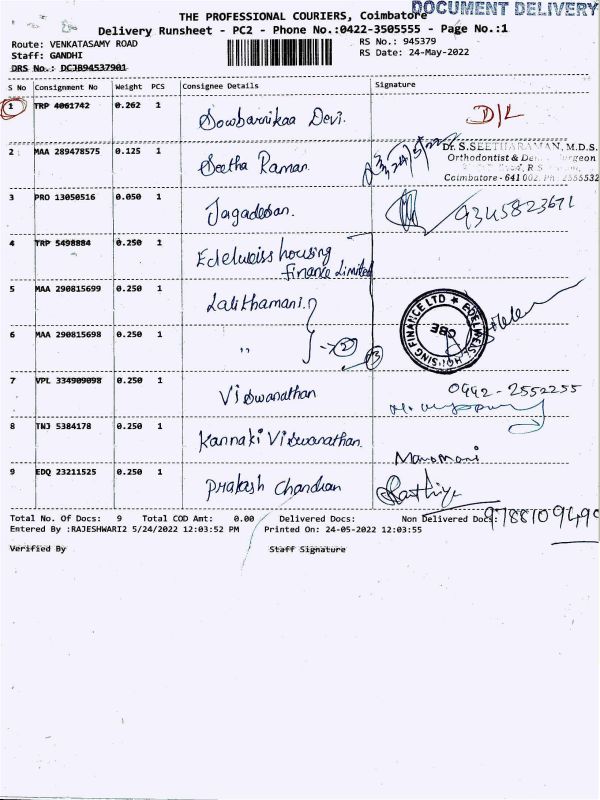 DOCUMENT DELIVERY
THE PROFESSIONAL COURIERS, Coimbatore
Delivery Runsheet - PC2 - Phone No.:0422-3505555 - Page No.:1
Route: VENKATASAMY ROAD RS No.: 945379
Staff: GANDHI RS Date: 24-May-2022
DRS No.: DCJB94537901
S No Consignment No Weight PCS Consignee Details Signature
1 TRP 4061742 0.262 1 Sowbarnikaa Devi. D/L
2 MAA 289478575 0.125 1 Seetha Raman. 24/5/22
Dr. S.SEETHARAMAN, M.D.S.
Orthodontist &
Coimbatore - 641 002. Ph: 2555532
3 PRO 13050516 0.050 1 Jagadeesan. 9345823671
4 TRP 5498884 0.250 1 Edelweiss housing
finance Limited
5 MAA 290815699 0.250 1 Lalithamani.
EDELWEISS HOUSING FINANCE LTD ★ CBE
6 MAA 290815698 0.250 1 " 2
3
7 VPL 334909098 0.250 1 Viswanathan 0442-2552255
8 TNJ 5384178 0.250 1 Kannaki Viswanathan.
Manomani
9 EDQ 23211525 0.250 1 Prakash Chandran Sathiya
9788109490
Total No. Of Docs: 9 Total COD Amt: 0.00 Delivered Docs: Non Delivered Docs:
Entered By :RAJESHWARI2 5/24/2022 12:03:52 PM Printed On: 24-05-2022 12:03:55
Verified By Staff Signature